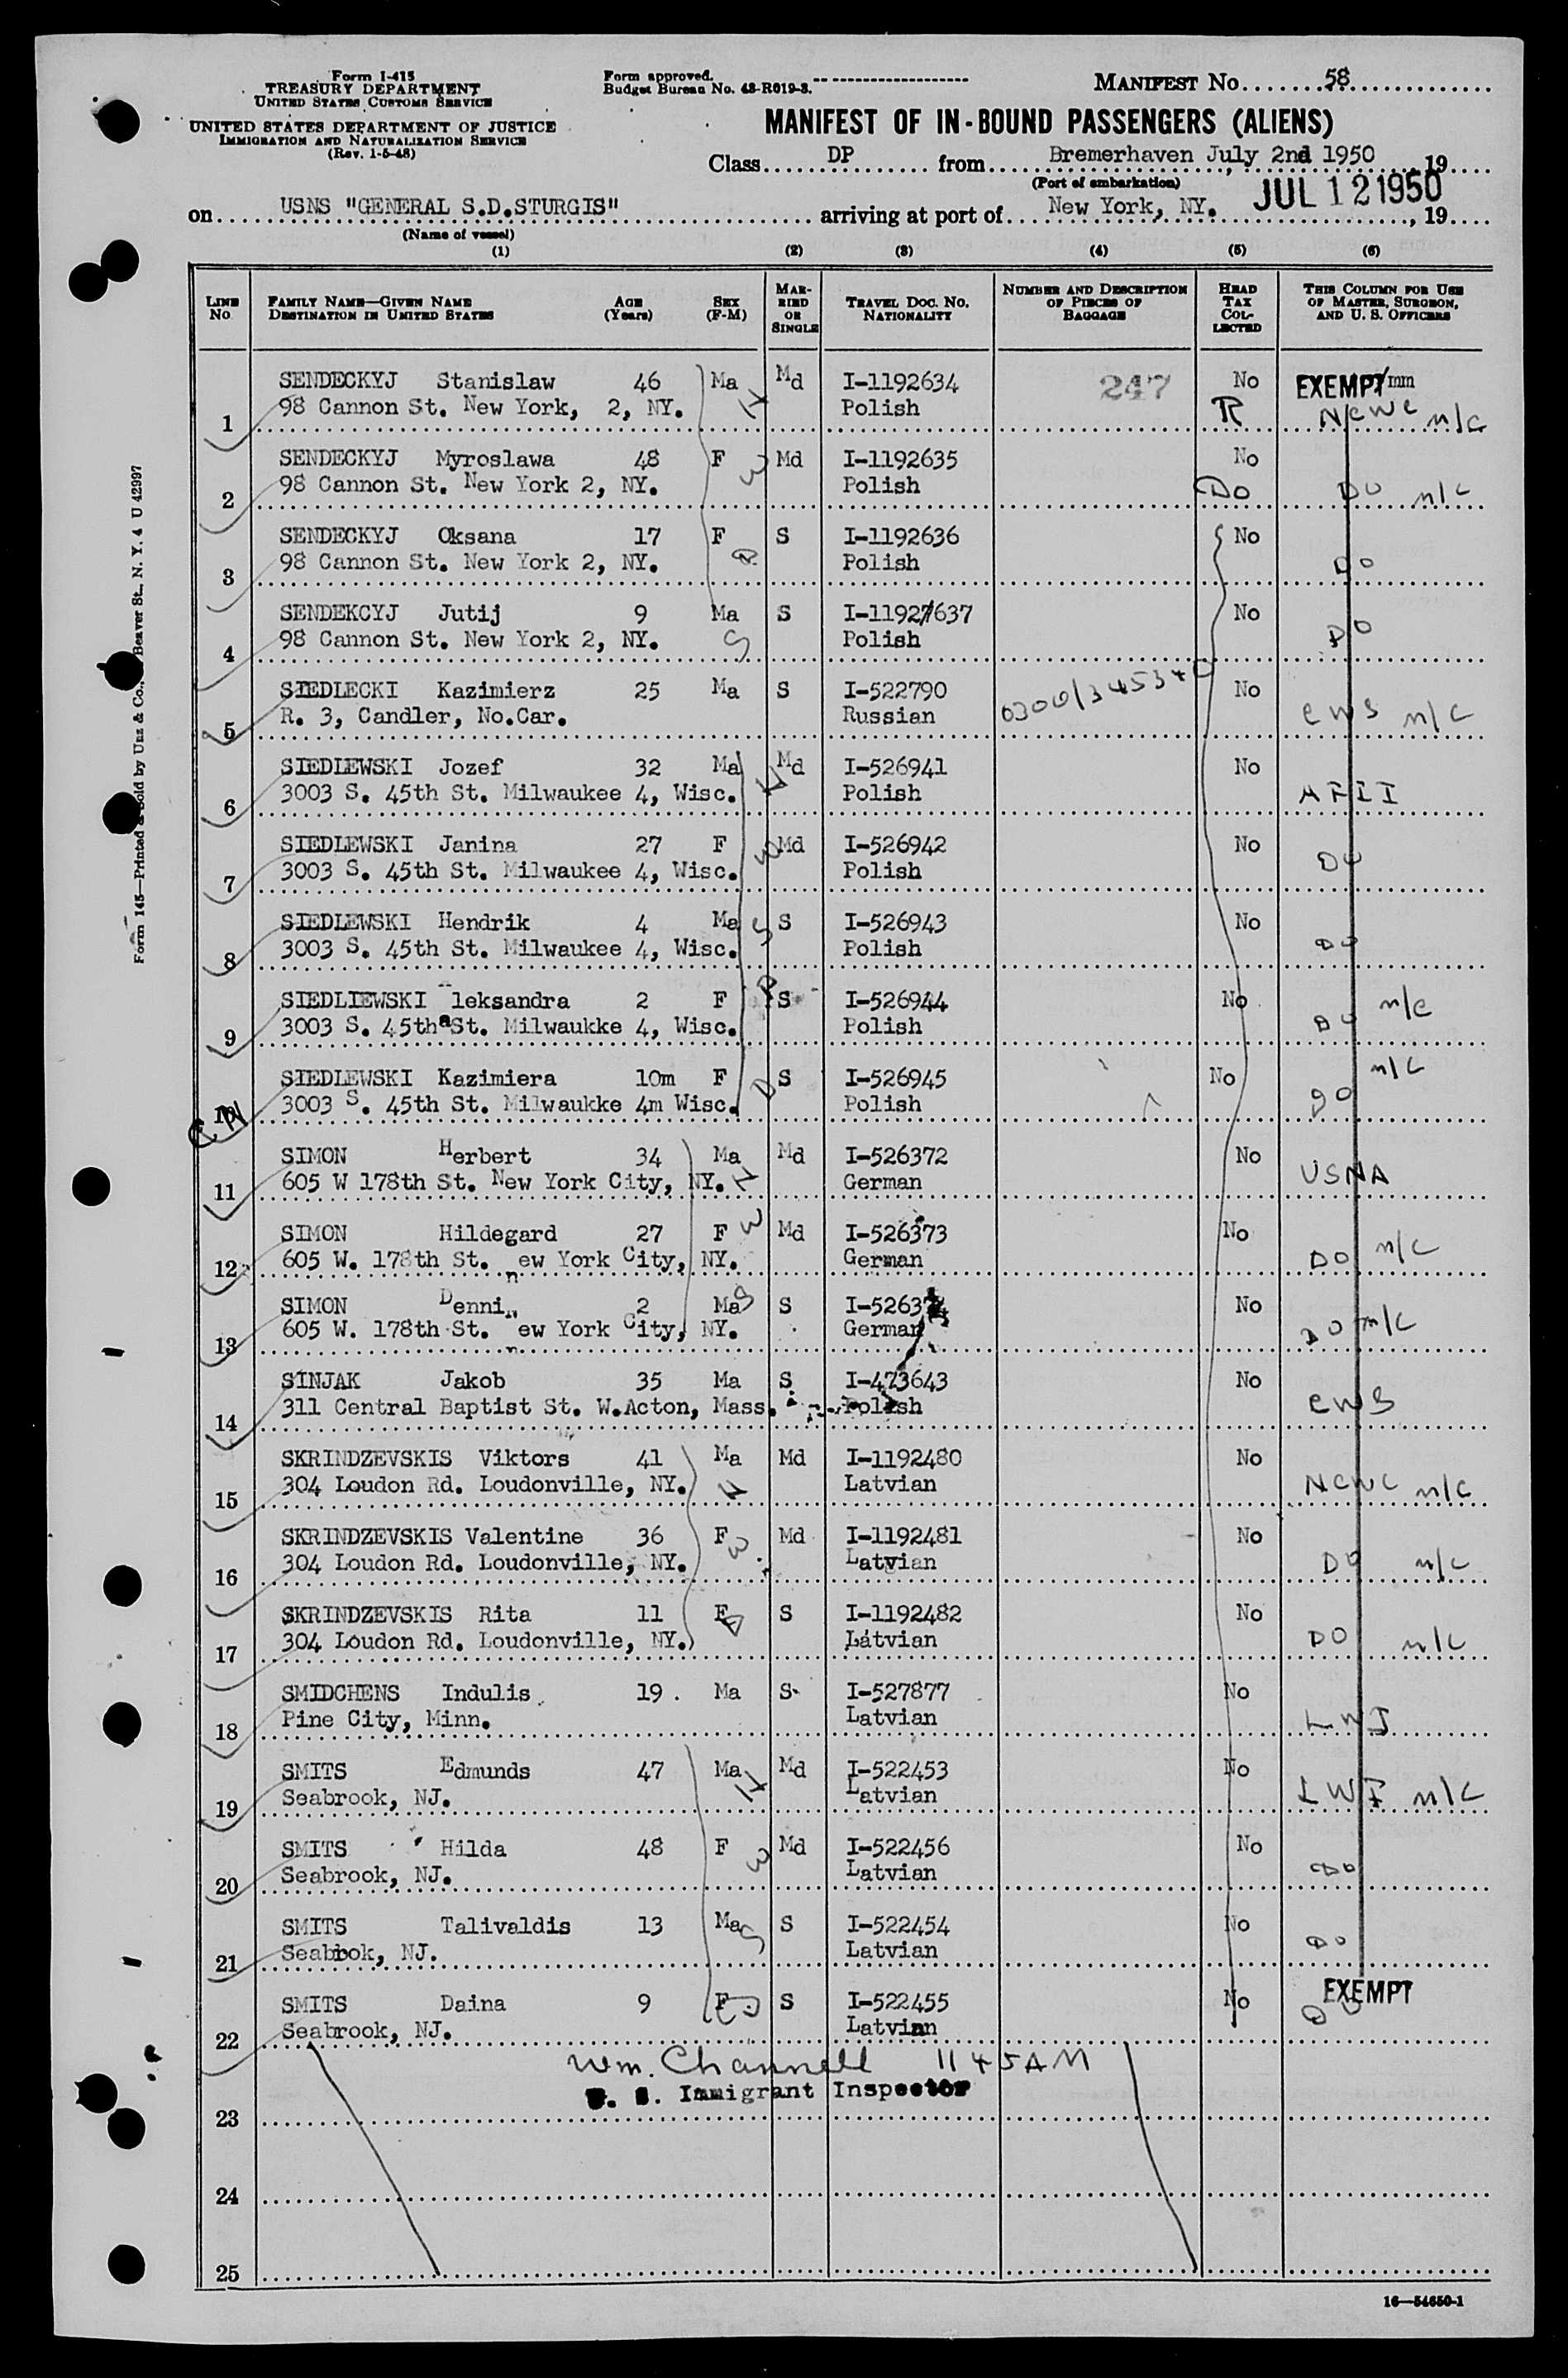 Form I-415
TREASURY DEPARTMENT
UNITED STATES CUSTOMS SERVICE
UNITED STATES DEPARTMENT OF JUSTICE
IMMIGRATION AND NATURALIZATION SERVICE
(Rev. 1-5-48)
Form approved.
Budget Bureau No. 43-R019-3.
MANIFEST No. 58
MANIFEST OF IN-BOUND PASSENGERS (ALIENS)
Class DP from Bremerhaven July 2nd 1950, 19
(Port of embarkation)
on USNS "GENERAL S.D.STURGIS" arriving at port of New York, NY. JUL 12 1950, 19
(Name of vessel)
(1) (2) (3) (4) (5) (6)
LINE No. FAMILY NAME—GIVEN NAME DESTINATION IN UNITED STATES AGE (Years) SEX (F-M) MARRIED OR SINGLE TRAVEL DOC. NO. NATIONALITY NUMBER AND DESCRIPTION OF PIECES OF BAGGAGE HEAD TAX COLLECTED THIS COLUMN FOR USE OF MASTER, SURGEON, AND U. S. OFFICERS
SENDECKYJ Stanislaw 46 Ma Md I-1192634 247 No EXEMPT/mm
1 98 Cannon St. New York, 2, NY. H Polish R NCWC n/c
SENDECKYJ Myroslawa 48 F Md I-1192635 No
2 98 Cannon St. New York 2, NY. W Polish Do Do n/c
SENDECKYJ Oksana 17 F S I-1192636 No
3 98 Cannon St. New York 2, NY. D Polish Do
SENDEKCYJ Jutij 9 Ma S I-11927/637 No
4 98 Cannon St. New York 2, NY. S Polish Do
SIEDLECKI Kazimierz 25 Ma S I-522790 0300/345340 No
5 R. 3, Candler, No.Car. Russian CWS n/c
SIEDLEWSKI Jozef 32 Ma Md I-526941 No
6 3003 S. 45th St. Milwaukee 4, Wisc. H Polish AFII
SIEDLEWSKI Janina 27 F Md I-526942 No
7 3003 S. 45th St. Milwaukee 4, Wisc. W Polish Do
SIEDLEWSKI Hendrik 4 Ma S I-526943 No
8 3003 S. 45th St. Milwaukee 4, Wisc. S Polish Do
SIEDLIEWSKI leksandra 2 F S I-526944 No n/c
9 3003 S. 45thaSt. Milwaukke 4, Wisc. D Polish Do
SIEDLEWSKI Kazimiera 10m F S I-526945 No n/c
10 3003 S. 45th St. Milwaukke 4m Wisc. D Polish Do
SIMON Herbert 34 Ma Md I-526372 No
11 605 W 178th St. New York City, NY. H German USNA
SIMON Hildegard 27 F W Md I-526373 No
12 605 W. 178th St. new York City, NY. German Do n/c
SIMON Denni 2 Ma S S No
13 605 W. 178th St. ew York City, NY. German Do n/c
SINJAK Jakob 35 Ma S I-473643 No
14 311 Central Baptist St. W.Acton, Mass. Polish CWS
SKRINDZEVSKIS Viktors 41 Ma Md I-1192480 No
15 304 Loudon Rd. Loudonville, NY. H Latvian NCWC n/c
SKRINDZEVSKIS Valentine 36 F W Md I-1192481 No
16 304 Loudon Rd. Loudonville, NY. Latvian Do n/c
SKRINDZEVSKIS Rita 11 F D S I-1192482 No
17 304 Loudon Rd. Loudonville, NY. Latvian DO n/c
SMIDCHENS Indulis 19. Ma S I-527877 No
18 Pine City, Minn. Latvian
SMITS Edmunds 47 Ma Md I-522453 No
19 Seabrook, NJ. H Latvian LWF n/c
SMITS Hilda 48 F W Md I-522456 No
20 Seabrook, NJ. Latvian Do
SMITS Talivaldis 13 Ma S S I-522454 No
21 Seabbok, NJ. Latvian Do
SMITS Daina 9 F D S I-522455 No EXEMPT
22 Seabrook, NJ. Latvian Do
Wm. Channell 11 45 AM
U. S. Immigrant Inspector
23
24
25
16—54650-1
Form 145—Printed & Sold by Unz & Co., Beaver St., N. Y. 4 U 42997